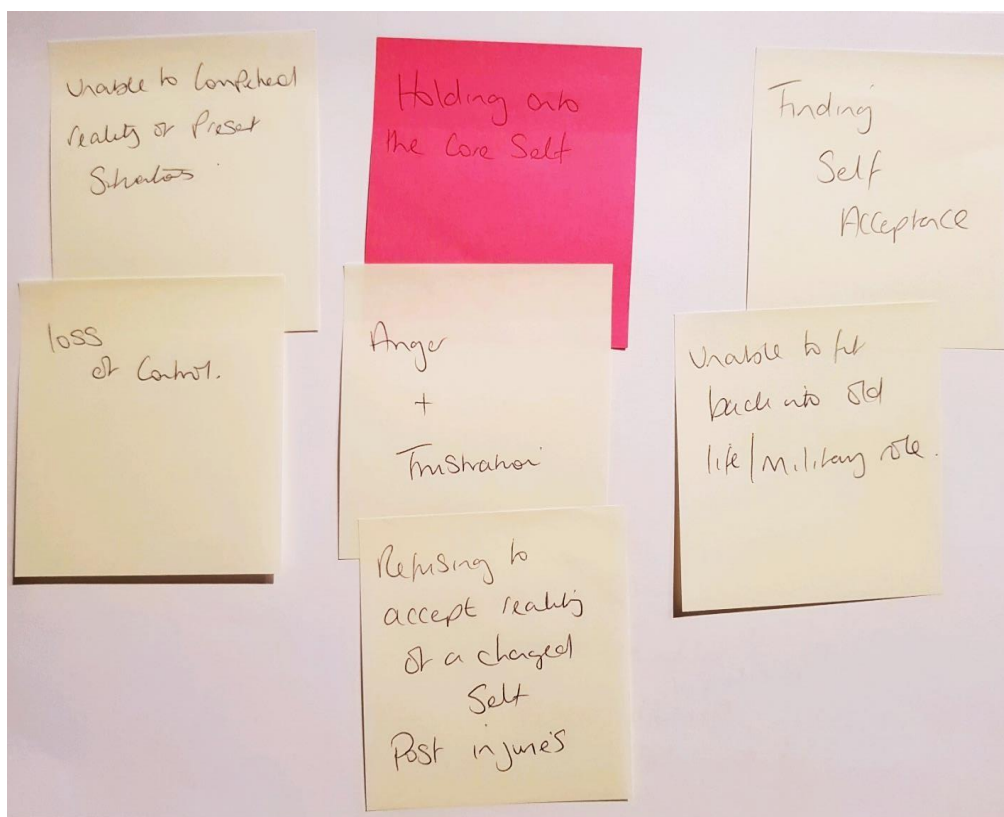 Unable to Comprehend
reality of Present
Situation
Holding onto
the Core Self
Finding
Self
Acceptance
loss
of Control.
Anger
+
Frustration
Unable to fit
back into old
life/military role.
Refusing to
accept reality
of a changed
Self
Post injuries